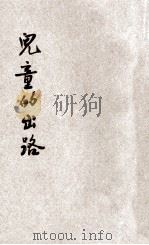 兒童的出路
mtoou.info